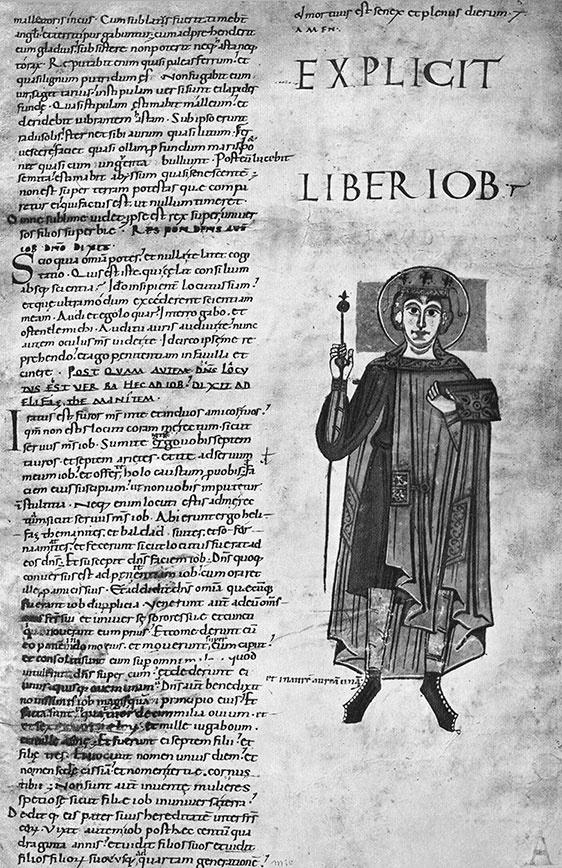 malleatoris incus. Cum sublatus fuerit timebt
angli. et territi purgabuntur. cum adprehenderit
eum gladius. subsistere non poterit neq; asta neq;
torax. Reputabit enim quasi paleas ferrum. et
quasi lignum putridum es. Non fugabit eum
vir sagittarius. in stipulam versi sunt ei lapides
funde. Quasi stipulam estimabit malleum. et
deridebit vibrantem astam. Sub ipso erunt
radii solis.
fervescere faciet quasi ollam profundum maris. po
net quasi cum ungenta bulliunt. Post eum lucebit
semita. estimabit abyssum quasi senescente.
non est super terram potestas que compa
retur ei. qui factus est ut nullum timeret.
Omne sublime videt. ipse est rex super univer
sos filios superbie. RESPONDENS AUT
IOB DNO DIXIT.
Scio quia omnia potes. et nulla te latet cogi
tatio. Quis est iste qui celat consilium
absq; scientia. Ideo insipienter locutus sum.
et que ultra modum excederent scientiam
meam. Audi et ego loquar. Interrogabo. et
ostende michi. Auditu auris audivi te. nunc
autem oculus ms videt te. Idcirco ipse me re
prehendo. et ago penitentiam in favilla et
cinere. POST QUAM AUTEM DNS LOCU
TUS EST VERBA HEC AD IOB. DIXIT AD
ELIFAZ THEMANITEM.
Iratus est furor ms in te et in duos amicos tuos.
qm non estis locuti coram me rectum. sicut
servus ms iob. Sumite ergo vobis septem
tauros. et septem arietes. et ite ad servum
meum iob. et offerte holocaustum pro vobis. fa
ciem eius suscipiam. ut non vobis imputetur
stultitia. Neq; enim locuti estis ad me rec
tum. sicut servus ms iob. Abierunt ergo heli
faz themanites. et baldad suites. et sofar
naamites. et fecerunt sicut locutus fuerat ad
eos dns. Et suscepit dns faciem iob. Dns quoq;
conversus est ad penitentiam iob. cum oraret
ille pro amicis suis. Et addidit dns omia quecuq;
fuerant iob dupplicia. Venerunt aut ad eum oms
fratres sui et universe sorores sue. et cuncti
qui noverant eum prius. Et comederunt cu
eo panem in domo eius. et moverunt super eum caput.
et consolati sunt eum super omni malo quod
intulerat dns super eum. et dederunt ei
unusquisq; ovem unam. Dns aute benedixit
novissimis iob magis quam principio eius. Et
facta sunt ei quattuordecim milia ovium. et
et mille iuga boum.
et mille asine. Et fuerunt ei septem filii. et
filie tres. Et vocavit nomen unius diem. et
nomen secde cassia. et nomen tertie cornus
tibii. Non sunt aut invente mulieres
speciose sicut filie iob in universa terra.
Dedit q; eis pater suus hereditate inter frs
eoru. Vixit autem iob post hec centu qua
draginta annis. et vidit filios suos et vidit
filios filioru suoru usq; ad quartam generatione.
et mortuus est senex et plenus dierum.
AMEN.
EXPLICIT
LIBER IOB
et inaurem auream unam.